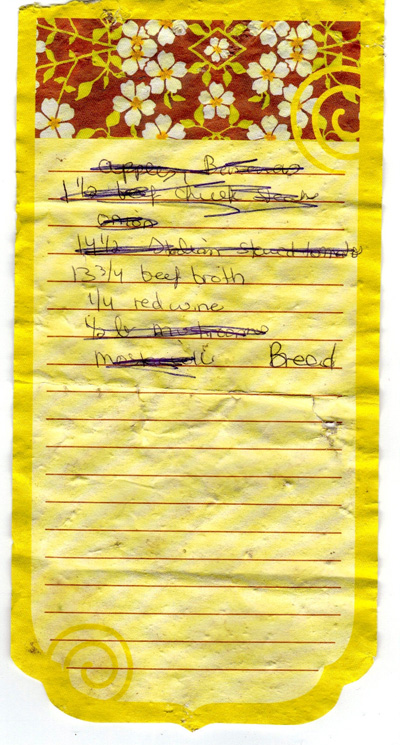 apples, Bananas
1 1/2 beef chuck
onion
14 1/2 Italian stewed tomato
13 3/4 beef broth
1/4 red wine
1/2 lb
Bread